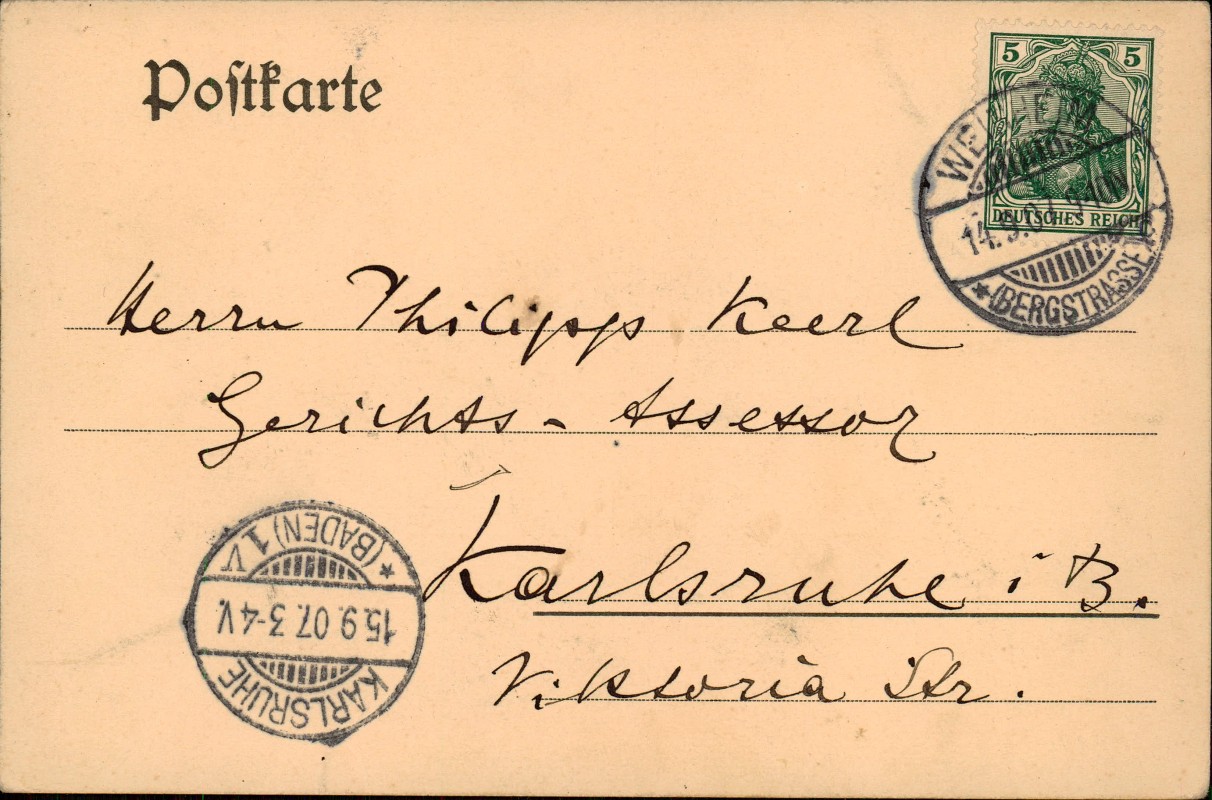 Postkarte
5 5
DEUTSCHES REICH
14.9.07.
*(BERGSTRASSE)
Herrn Philipp Keerl
Gerichts-Assessor
Karlsruhe i B.
Viktoria Str.
KARLSRUHE
15.9.07.3-4V.
*(BADEN)1V